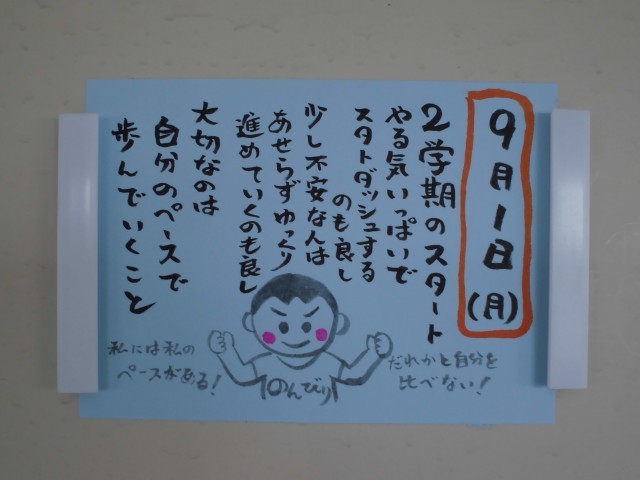 9月1日(月)
2学期のスタート
やる気いっぱいで
スタトダッシュする
のも良し
少し不安な人は
あせらずゆっくり
進めていくのも良し
大切なのは
自分のペースで
歩んでいくこと
だれかと自分を
比べない!
のんびり
私には私の
ペースがある!